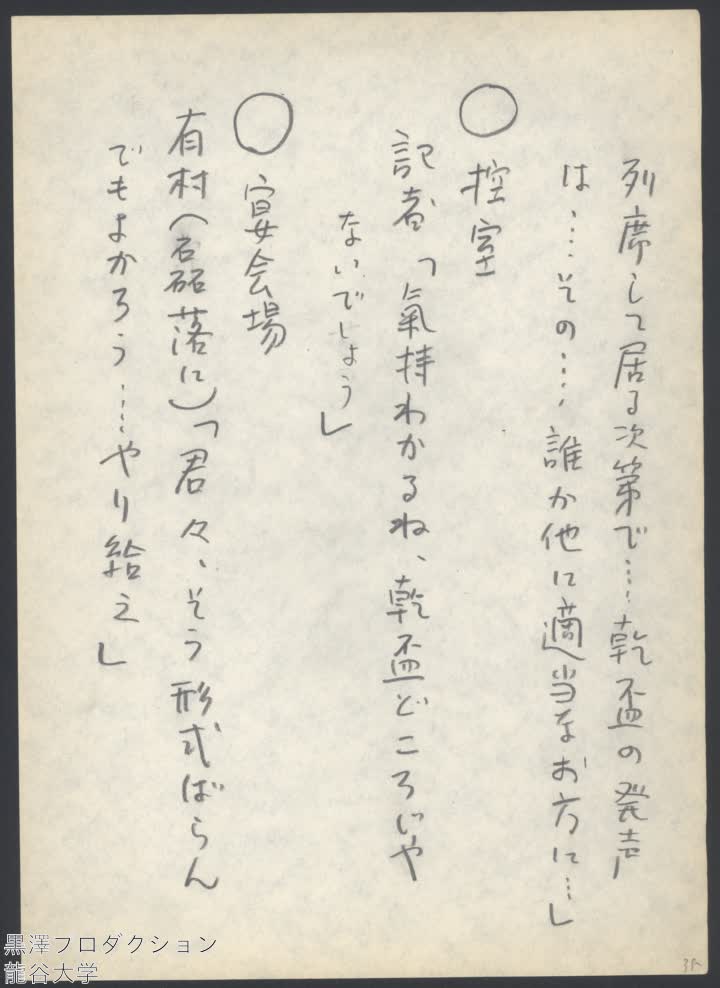 列席して居る次第で…乾盃の発声
は…その…誰か他に適当なお方に…」
○ 控室
記者「氣持わかるね、乾盃どころじゃ
ないでしょう」
○ 宴会場
有村(磊落に)「君々、そう形式ばらん
でもよかろう…やり給え」
黒澤プロダクション
龍谷大学